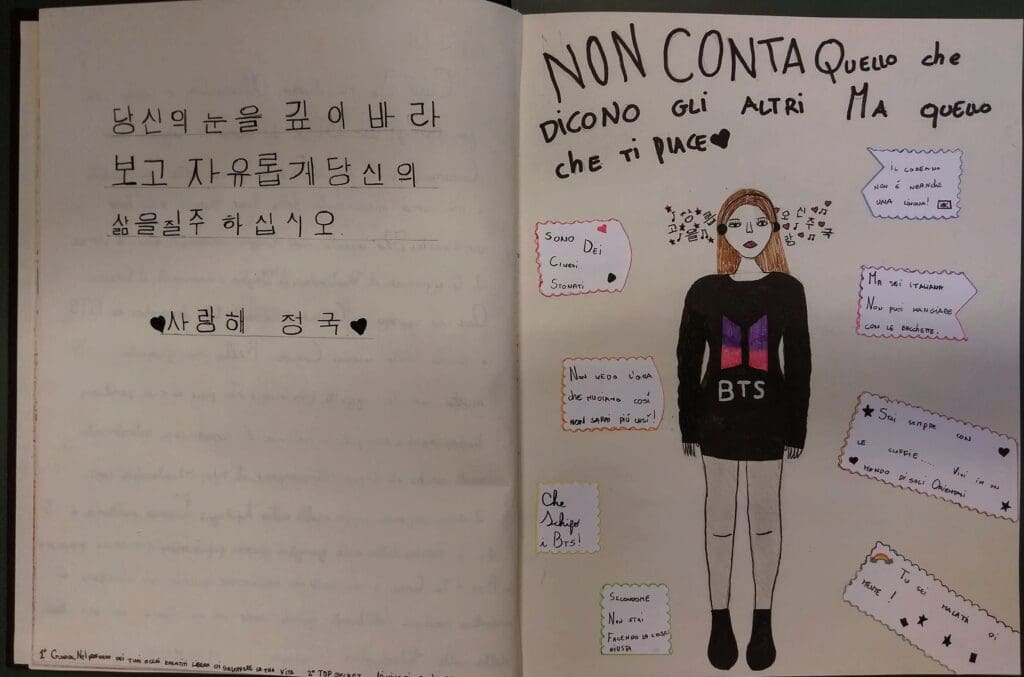 당신의 눈을 깊이 바라
보고 자유롭게 당신의
삶을질주 하십시오.
사랑해 정국
1° Guarda Nel profondo dei tuoi occhi ed sentiti libero di galoppare la tua vita 2° TOP SECRET
NON CONTA QUELLO che
DICONO GLI ALTRI MA QUELLO
che TI PIACE
IL COREANO
NON É NEANCHE
UNA LINGUA!
SONO DEI
CINESI
STONATI
MA SEI ITALIANA
NON PUOI MANGIARE
CON LE BACCHETTE.
BTS
NON VEDO L'ORA
CHE MUOIANO COSÍ
NON SARAI PIÚ COSÍ!
SEI SEMPRE CON
LE CUFFIE.... VIVI IN UN
MONDO DI SOLI ORIENTALI
Che
Schifo
i BTS!
TU SEI MALATA DI
MENTE!
SECONDOME
NON STAI
FACENDO LA COSA
GIUSTA